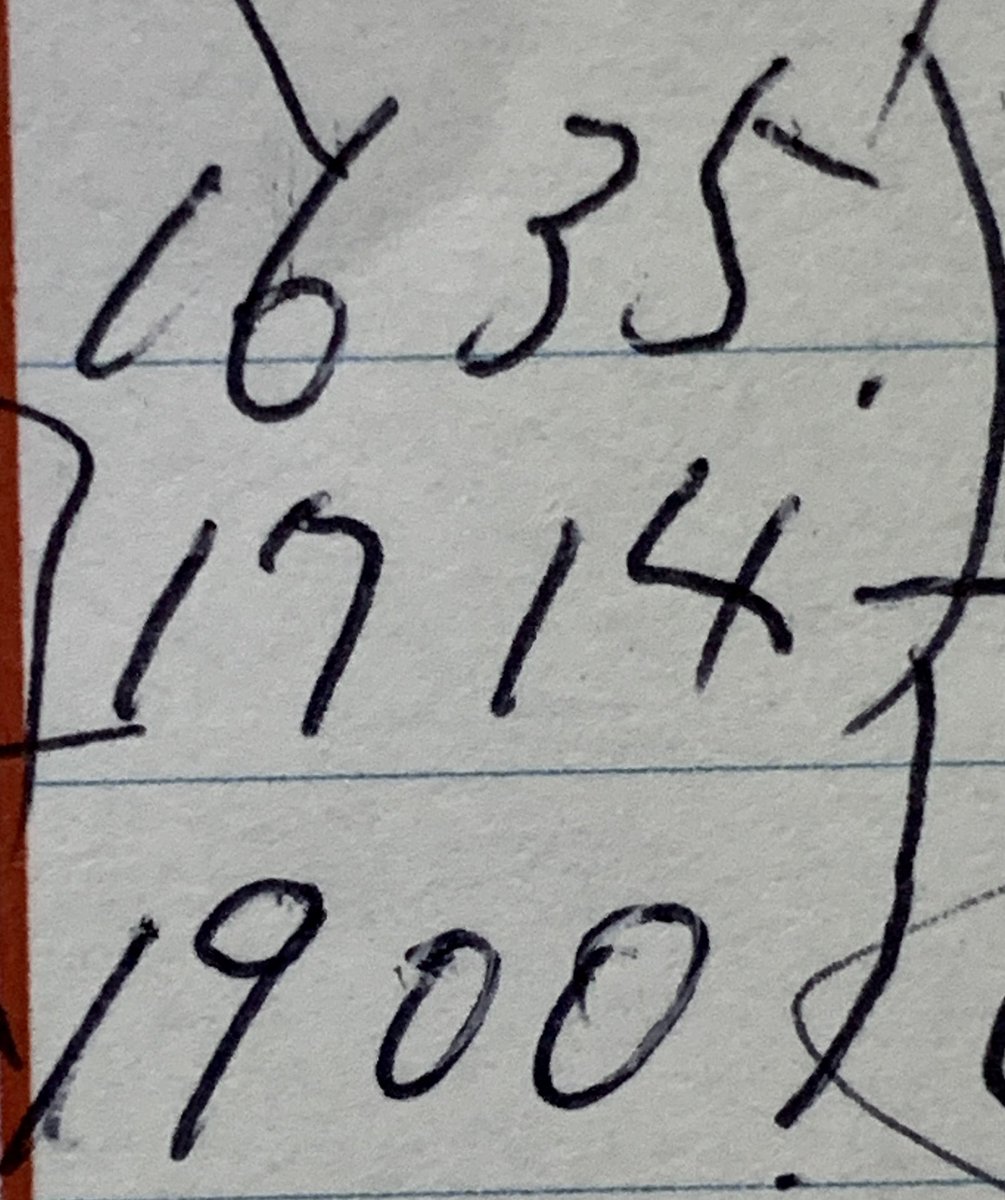 16 35
17 14
19 00